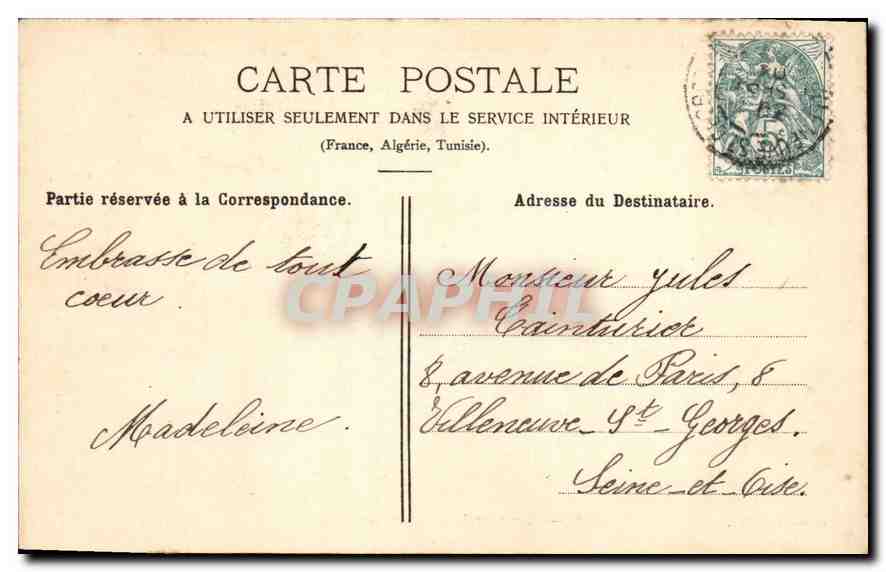 CARTE POSTALE
A UTILISER SEULEMENT DANS LE SERVICE INTÉRIEUR
(France, Algérie, Tunisie).
Partie réservée à la Correspondance.
Embrasse de tout
coeur
Madeleine.
Adresse du Destinataire.
Monsieur Jules
Cainturier
8, avenue de Paris, 8
Villeneuve-St-Georges.
Seine-et-Oise.
CPAPHIL
POSTES